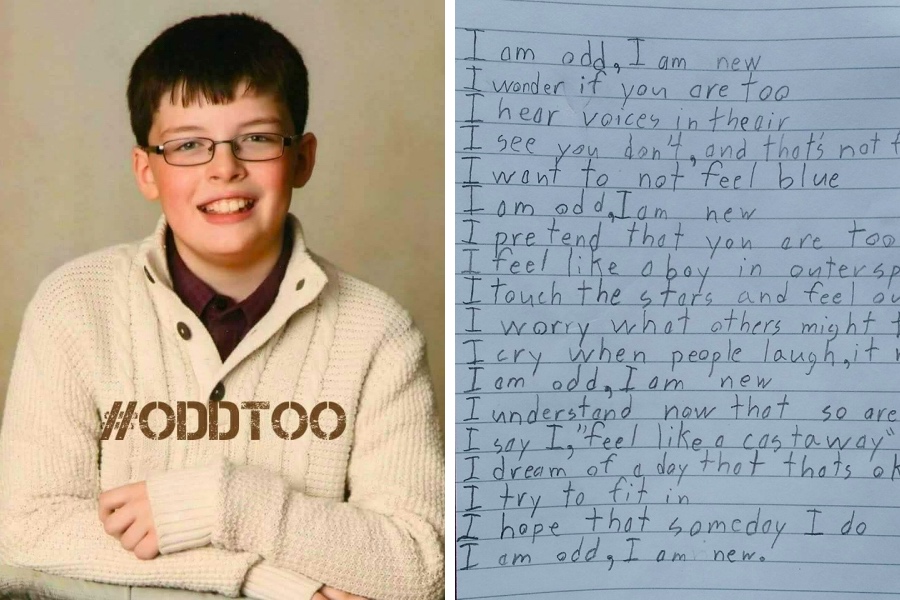 #ODDTOO
I am odd, I am new
I wonder if you are too
I hear voices in theair
I see you don't, and that's not
I want to not feel blue
I am odd, I am new
I pretend that you are too
I feel like a boy in outersp
I touch the stars and feel ou
I worry what others might
I cry when people laugh, it
I am odd, I am new
I understand now that so are
I say I, "feel like a castaway"
I dream of a day that thats ok
I try to fit in
I hope that someday I do
I am odd, I am new.